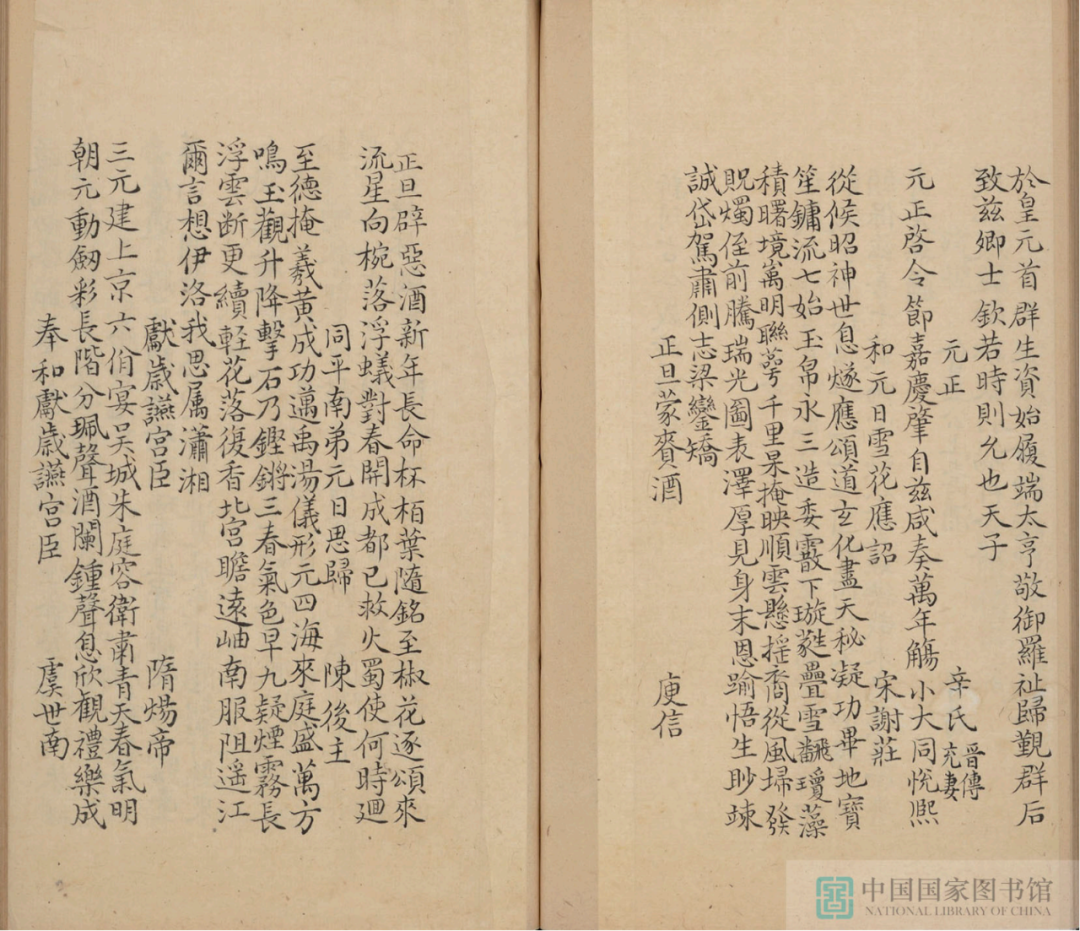 於皇元首群生資始履端太亨敬御羅祉歸覲群后
致茲卿士欽若時則允也天子
元正 辛氏 晋傅充妻
元正啓令節嘉慶肇自兹咸奏萬年觴小大同悅熙
和元日雪花應詔 宋謝莊
從候昭神世息燧應頌道玄化盡天秘凝功畢地寶
笙鏞流七始玉帛永三造委霰下璇蕤疊雪翻瓊藻
積曙境萬明聯萼千里杲掩映順雲懸摇裔從風埽發
貺燭侄前騰瑞光圖表澤厚見身末恩踰悟生眇竦
誠岱駕肅側志梁鑾矯
正旦蒙賚酒 庾信
正旦辟惡酒新年長命杯柏葉隨銘至椒花逐頌來
流星向椀落浮蟻對春開成都已救火蜀使何時廻
同平南弟元日思歸 陳後主
至德掩羲黄成功邁禹湯儀形元四海來庭盛萬方
鳴玉觀升降擊石乃鏗鏘三春氣色早九疑煙霧長
浮雲断更續軽花落復香北宫瞻遠岫南服阻遥江
爾言想伊洛我思属瀟湘
獻歳讌宫臣 隋煬帝
三元建上京六佾宴吴城朱庭容衛肅青天春氣明
朝元動劒彩長階分珮聲酒闌鍾聲息欣觀禮樂成
奉和獻歳讌宫臣 虞世南
中国国家图书馆
NATIONAL LIBRARY OF CHINA